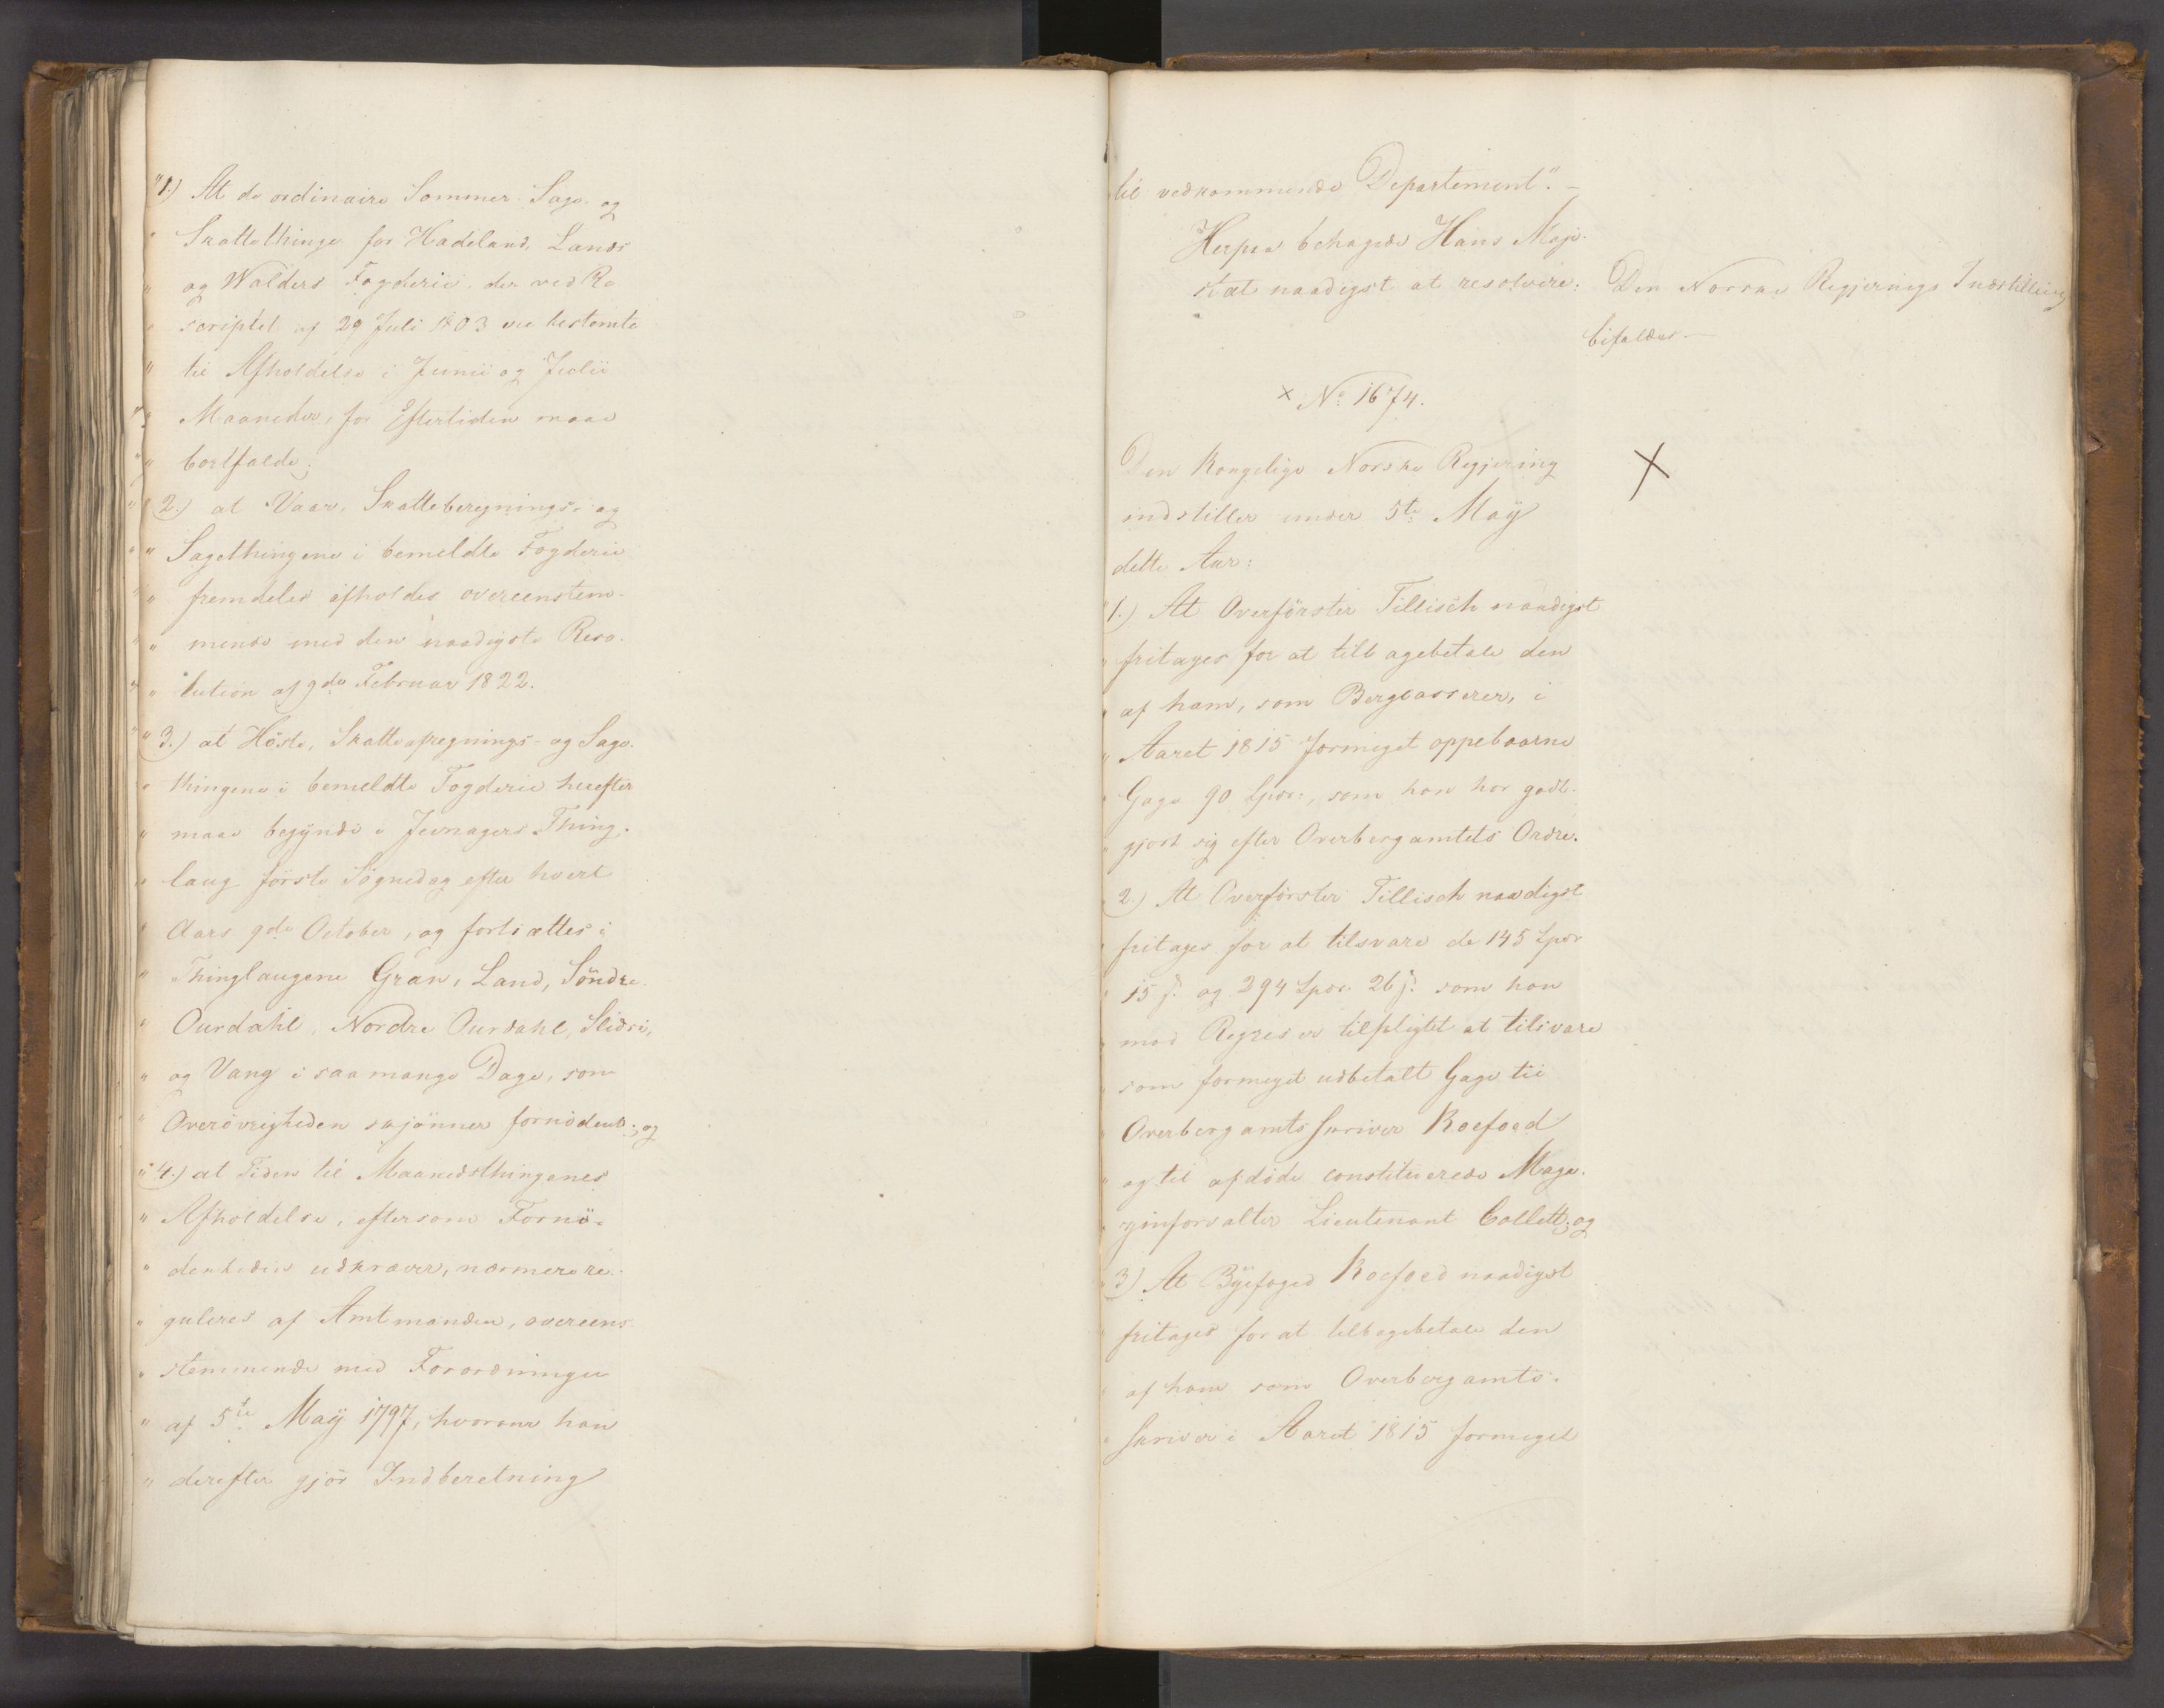 "1.) At de ordinaire Sommer Sage- og
" Skattethinge for Hadeland, Lands
" og Walders Fogderie, der ved Re
" scriptet af 29 Juli 1803 ere bestemte
" til Afholdelse i Junii og Julii
" Maaneder, for Eftertiden maae
" bortfalde;
" 2.) at Vaar, Skatteberegnings- og
" Sagethingene i bemeldte Fogderie
" fremdeles afholdes overeenstem-
" mende med den naadigste Reso-
" lution af 9de Februar 1822.
" 3.) at Höste, Skatteafregnings- og Sage-
" thingene i bemeldte Fogderie herefter
" maae begÿnde i Jevnagers Thing-
" laug förste Sögnedag efter hvert
" Aars 9de October, og fortsættes i
" Thinglaugene Gran, Land, Söndre
" Ourdahl, Nordre Ourdahl, Slidre,
" og Vang i saa mange Dage, som
" Overövrigheden skjönner fornödent; og
" 4.) at Tiden til Maanedsthingenes
" Afholdelse, eftersom Fornö-
" denheden udkræver, nærmere re-
" guleres af Amtmanden, overeens
" stemmende med Forordningen
" af 5te Maÿ 1797, hvorom han
" derefter gjör Indberetning
til vedkommende Departement". —
Herpaa behagede Hans Maje-
stæt naadigst at resolvere: Den Norske Regjerings Indstilling
bifaldes. —
× No 1674.
Den Kongelige Norske Regjering
indstiller under 5te Maÿ
dette Aar:
"1.) At Overförster Tillisch naadigst
" fritages for at tilbagebetale den
" af ham, som Bergcasserer, i
" Aaret 1815 formeget oppebaarne
" Gage 90 Spdr., som han har godt-
" gjort sig efter Overbergamtets Ordre.
" 2.) At Overförster Tillisch naadigst
" fritages for at tilsvare de 145 Spdr
" 15 ß. og 294 Spdr 26 ß. som han
" mod Regres er tilpligtet at tilsvare
" som formeget udbetalt Gage til
" Overbergamts Skriver Roefoed
" og til afdöde constituerede Maga-
" zinforvalter Lieutenant Collett; og
" 3.) At Bÿefoged Roefoed naadigst
" fritages for at tilbagebetale den
" af ham som Overbergamts-
" Skriver i Aaret 1815 formeget